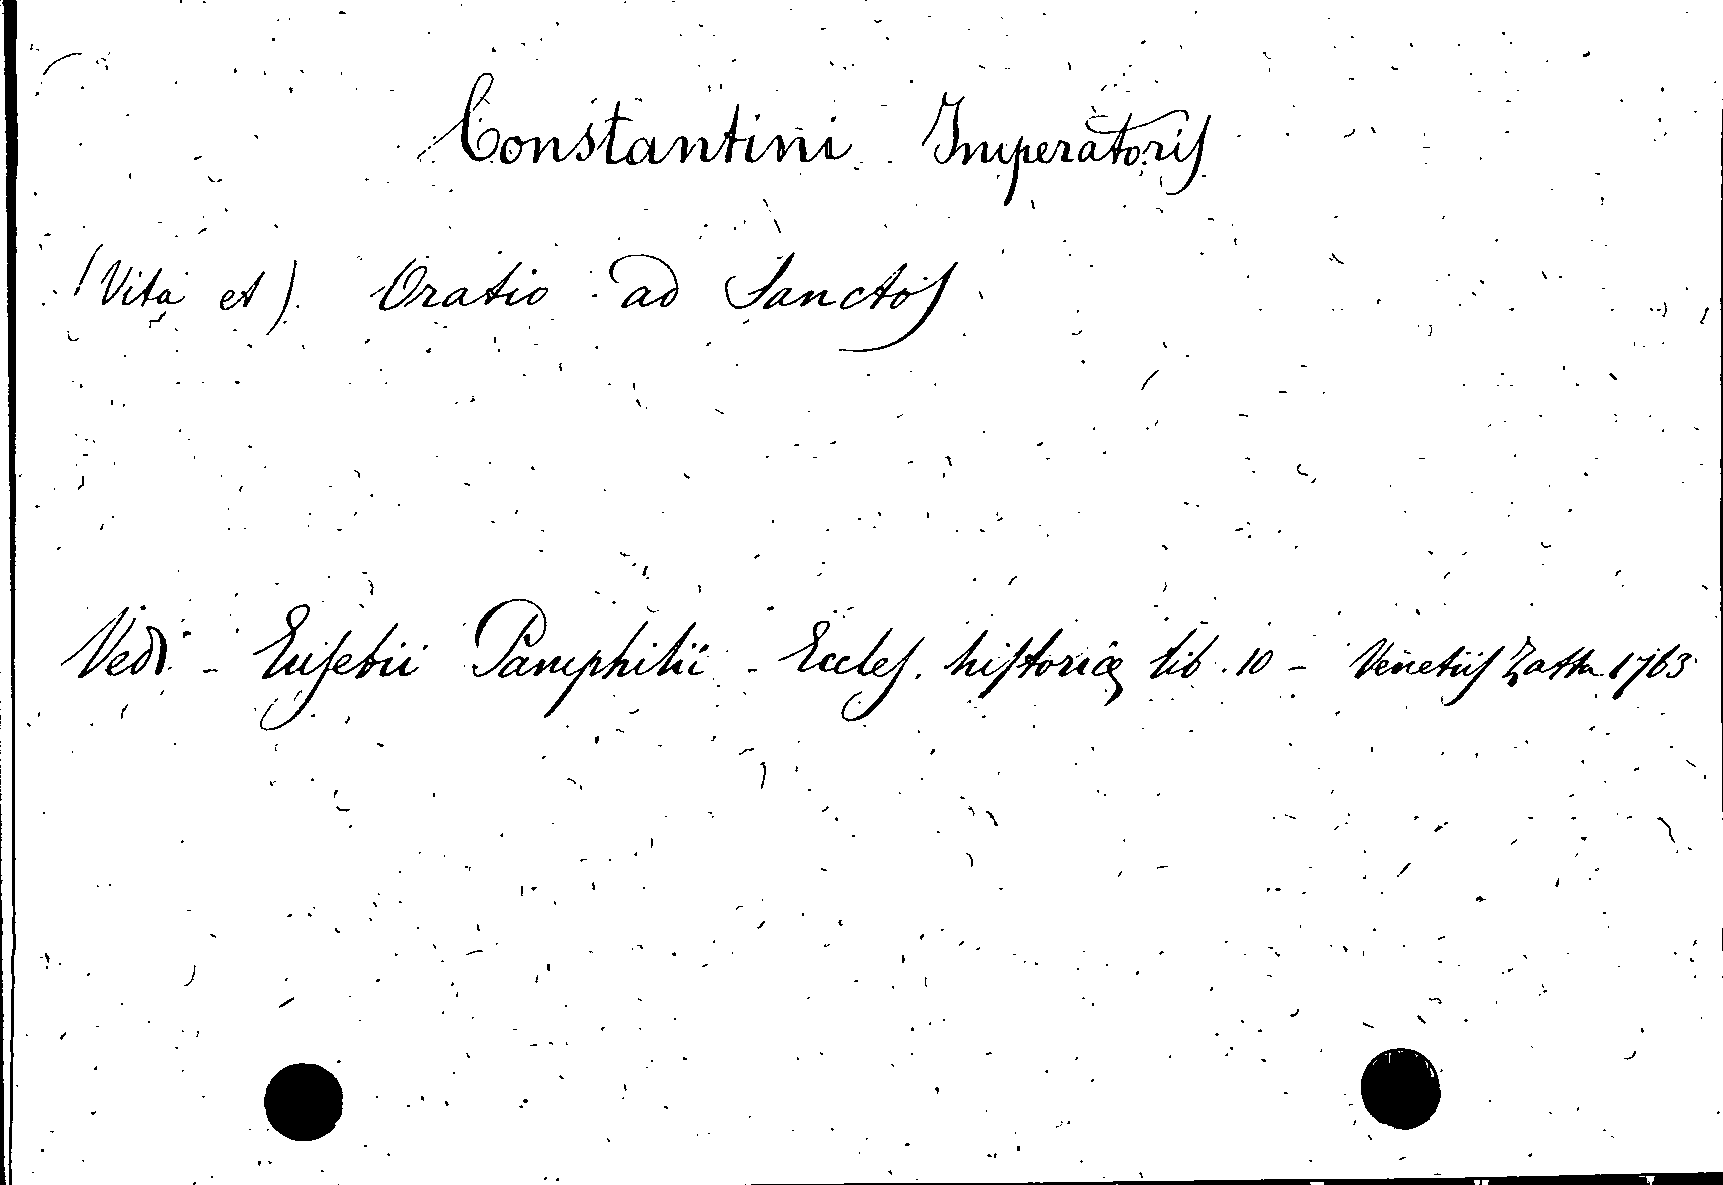 Constantini Imperatoris
(Vita et) Oratio ad Sanctos
Vedi - Eusebii Pamphilii - Eccles. historiæ lib. 10 - Venetiis Zatta 1763